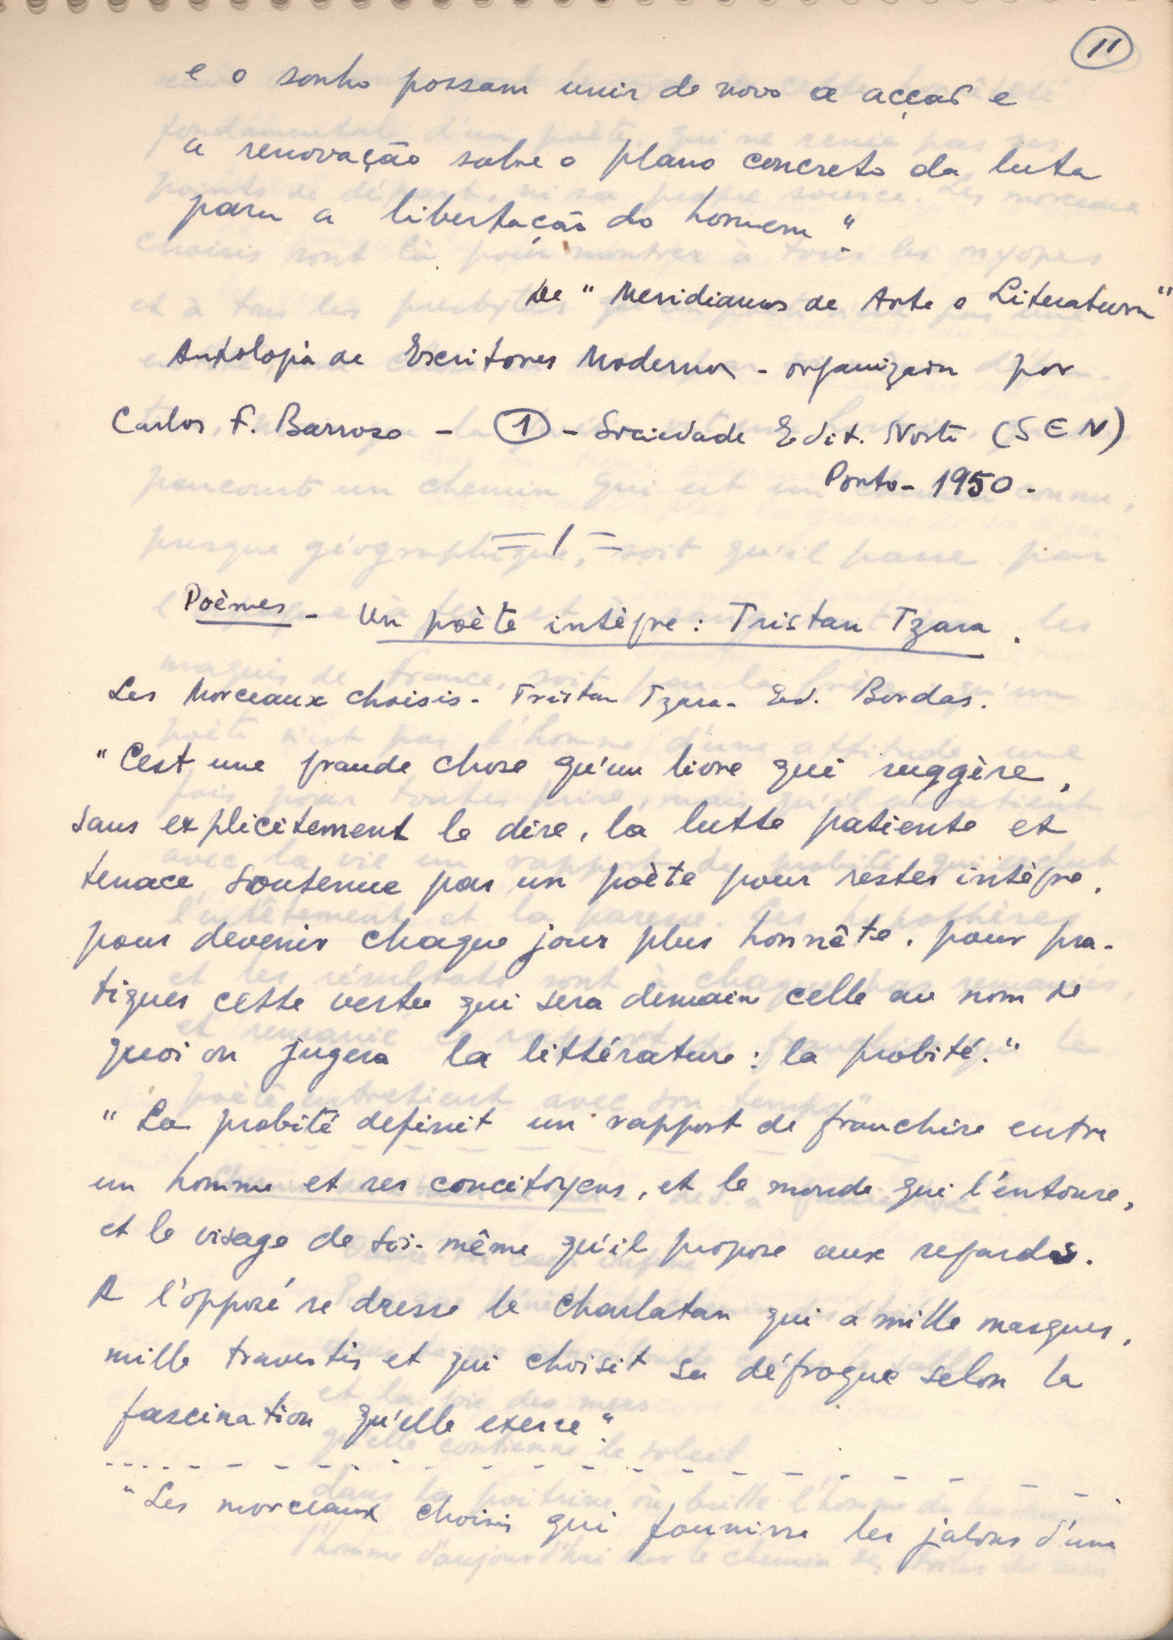 11
e o sonho possam unir de novo a acção e
a renovação sobre o plano concreto da luta
para a libertação do homem".
De "Meridianos de Arte e Literatura"
Antologia de Escritores Modernos - organizada por
Carlos F. Barroso - 1 - Sociedade Edit. Norte (SEN)
Porto - 1950.
Poèmes - Un poète intègre : Tristan Tzara.
Les Morceaux choisis - Tristan Tzara - Ed. Bordas.
"C'est une grande chose qu'un livre qui suggère,
sans explicitement le dire, la lutte patiente et
tenace soutenue par un poète pour rester intègre,
pour devenir chaque jour plus honnête, pour pra-
tiquer cette vertu qui sera demain celle au nom de
quoi on jugera la littérature : la probité."
"La probité definit un rapport de franchise entre
un homme et ses concitoyens, et le monde qui l'entoure,
et le visage de soi-même qu'il propose aux regards.
A l'opposé se dresse le charlatan qui a mille masques,
mille travestis et qui choisit sa défroque selon la
fascination qu'elle exerce".
"Les morceaux choisis qui les jalons d'une